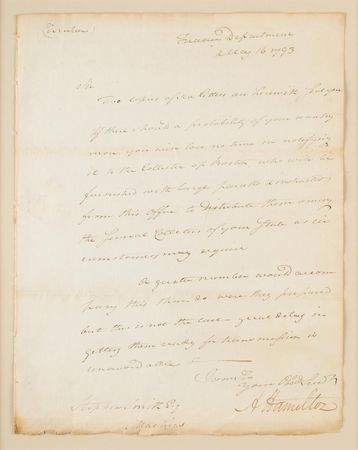 Circular
Treasury Department
May 16 1793
Sir
Two copies of Sea Letters are herewith sent you
If there should a probability of your wanting
more you will lose no time in notifying
it to the Collector of Boston who will be
furnished with large parcels &
from this office to distribute them among
the several Collectors of your State as
circumstances may require
A greater number would accom
pany this then do were they prepared
but this is not the case great delay in
getting them ready for transmission is
unavoidable
I am Sir
Your Obed Servt
A Hamilton
Stephen Smith Esq
Machias